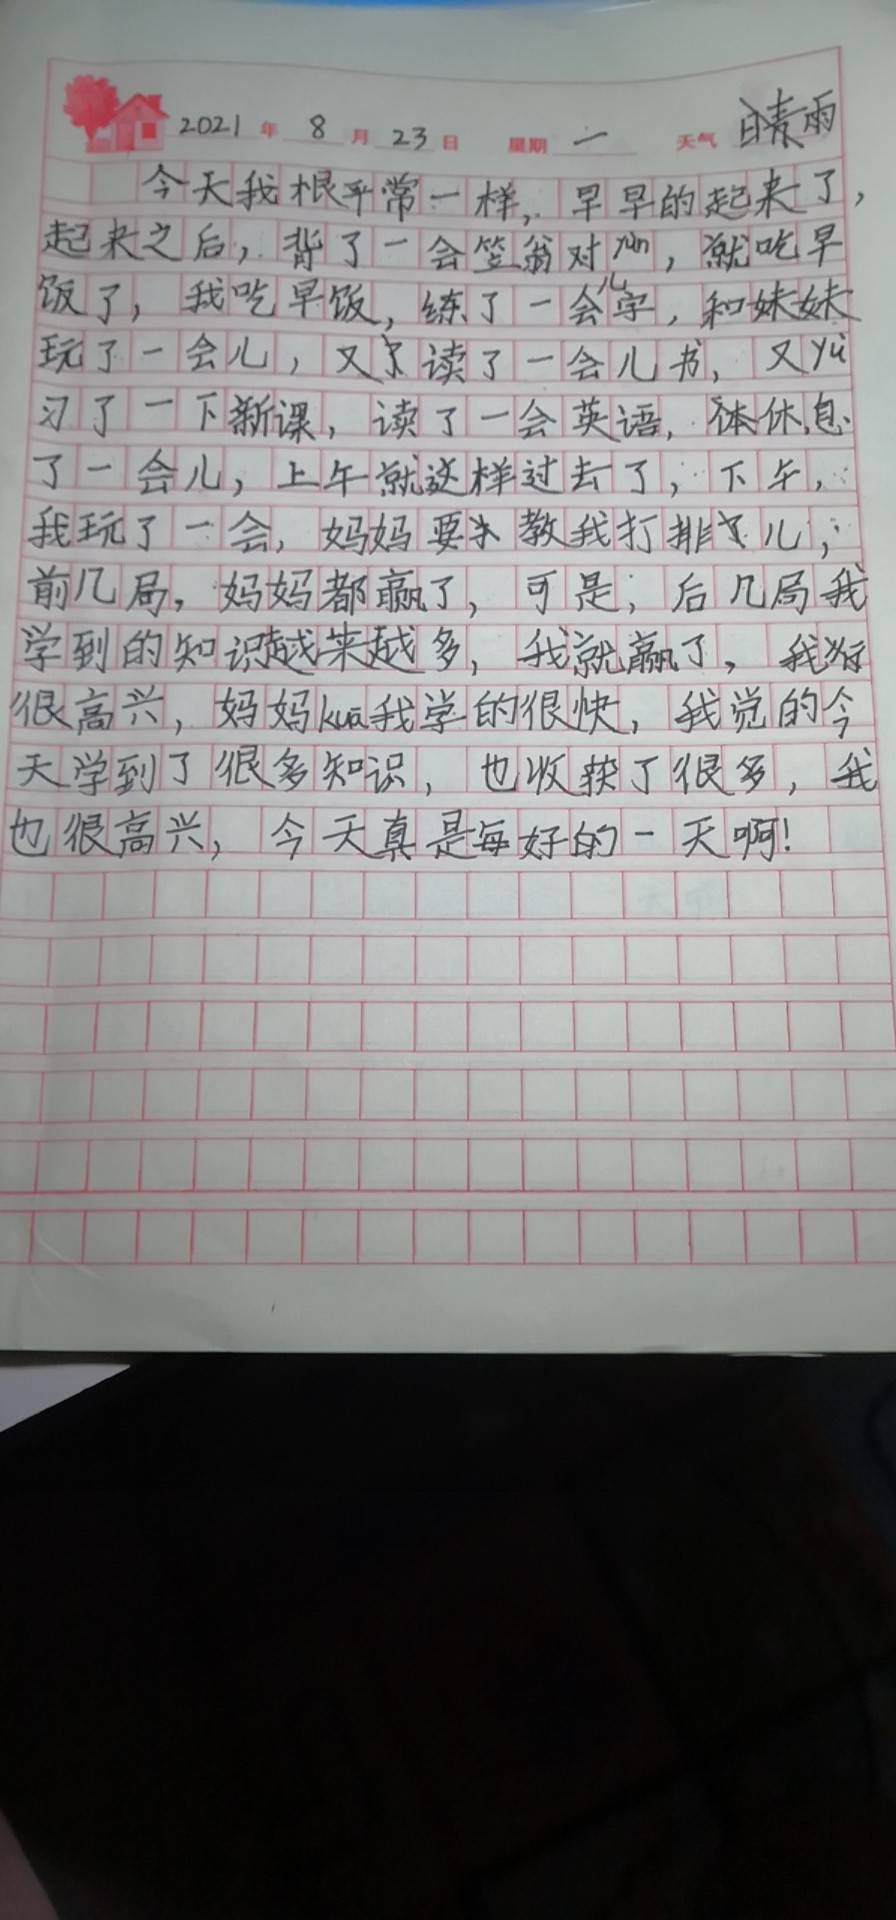 2021年 8月 23日 星期 一 天气 晴雨
今天我根平常一样,早早的起来了,
起来之后,背了一会笠翁对yùn,就吃早
饭了,我吃早饭,练了一会儿字,和妹妹
玩了一会儿,又读了一会儿书,又yù
习了一下新课,读了一会英语,休息
了一会儿,上午就这样过去了,下午,
我玩了一会,妈妈要教我打排儿,
前几局,妈妈都赢了,可是,后几局我
学到的知识越来越多,我就赢了,我
很高兴,妈妈kuā我学的很快,我觉的今
天学到了很多知识,也收获了很多,我
也很高兴,今天真是每好的一天啊!